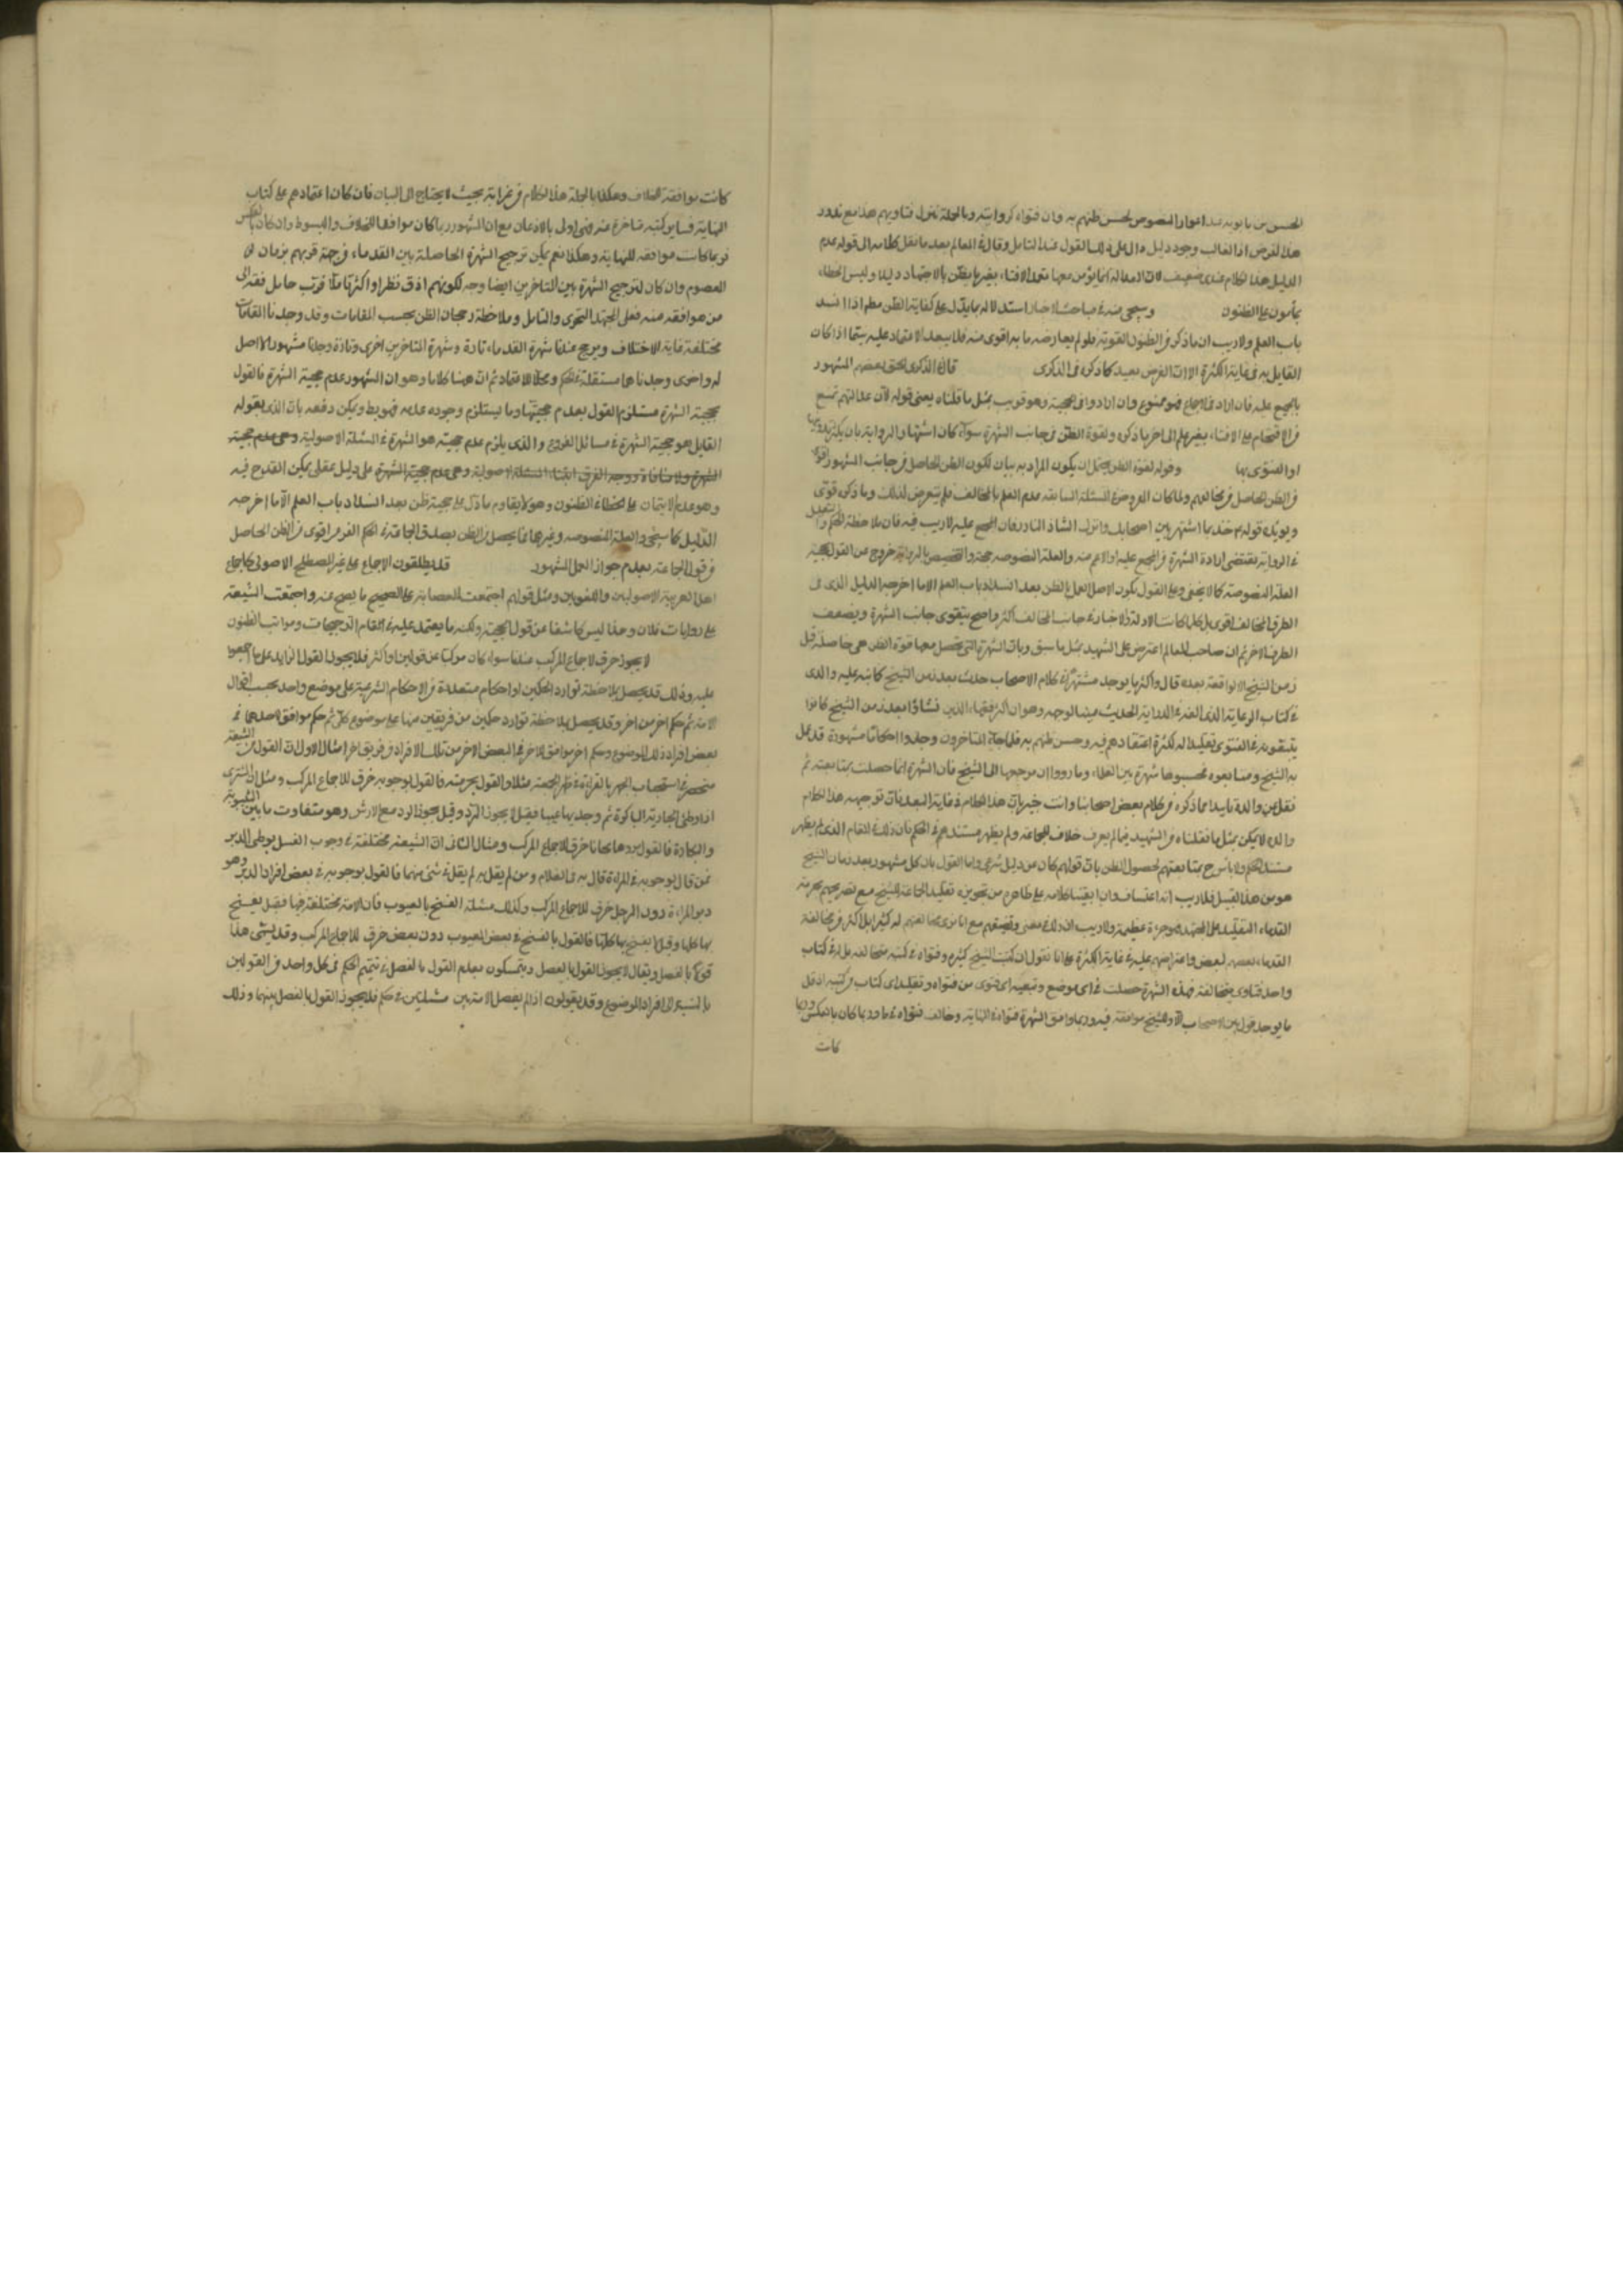 الحسن بن بابويه عند اعواز النصوص لحسن ظنهم به وان فتواه كروايته وبالجملة تنزل فتاويهم هذا مع ندور
هذا الفرض اذ الغالب وجود دليل دال على ذلك القول عند التامل وقال في المعالم بعد ما نقل كلامه الى قوله عدم
الدليل هذا الكلام عندي ضعيف لان العدالة انما يؤمن معها تعمد الافتاء بغير ما يظن بالاجتهاد دليلا وليس الخطاء
بمأمون على الظنون وسيجئ منه في مباحث الاخبار استدلاله بما يدل على كفاية الظن مطم اذا انسد
باب العلم ولا ريب ان ما ذكر من الظنون القوية فلو لم يعارضه ما به اقوى منه فلا يبعد الاعتماد عليه سيما اذا كان
القايل به في غاية الكثرة الا ان الفرض بعيد كما ذكره في الذكرى قال في الذكرى الحق بعضهم المشهور
بالمجمع عليه فان اراد في الاجماع فهو ممنوع وان ارادوا في الحجية وهو قريب بمثل ما قلناه يعني قوله لان عدالتهم تمنع
من الاقتحام على الافتاء بغير علم الى اخر ما ذكره ولقوة الظن في جانب الشهرة سواء كان اشتهار الرواية بان يكثر تدوينها
او الفتوى بها وقوله لقوة الظن يحتمل ان يكون المراد به بيان لكون الظن الحاصل من جانب المشهور اقوى
من الظن الحاصل من مخالفهم ولما كان المفروض في المسئلة السابقة عدم العلم بالمخالف فلم يتعرض لذلك وما ذكره قوي
ويؤيده قوله ع خذ بما اشتهر بين اصحابك واترك الشاذ النادر فان المجمع عليه لا ريب فيه فان ملاحظة الحكم والتعليل
في الرواية يقتضي ارادة الشهرة من المجمع عليه او الاعم منه والعلة المنصوصة حجة والتخصيص بالرواية خروج عن القول بحجية
العلة المنصوصة كما لا يخفى وعلى القول بكون الاصل العمل بالظن بعد انسداد باب العلم الا ما اخرجه الدليل الذي في
الطرف المخالف اقوى بل كلما كانت الادلة والاخبار في جانب المخالف اكثر واصح يتقوى جانب الشهرة ويضعف
الطرف الاخر ثم ان صاحب المعالم اعترض على الشهيد بمثل ما سبق وبان الشهرة التي تحصل معها قوة الظن هي حاصلة قبل
زمن الشيخ لا الواقعة بعده قال واكثر ما يوجد مشتهرا في كلام الاصحاب حدث بعد زمن الشيخ كما نبه عليه والدي
في كتاب الرعاية الذي الفه في الدراية الحديث مبينا لوجهه وهو ان اكثر الفقهاء الذين نشاؤا بعد زمن الشيخ كانوا
يتبعونه في الفتوى تقليدا له لكثرة اعتقادهم فيه وحسن ظنهم به فلما جاء المتاخرون وجدوا احكاما مشهورة قد عمل
به الشيخ ومتابعوه فحسبوها شهرة بين العلماء وما دروا ان مرجعها الى الشيخ فان الشهرة انما حصلت بمتابعته ثم
نقل عن والده تاييدا لما ذكره من كلام بعض اصحابنا وانت خبير بان هذا الكلام في غاية البعد فان توجيه هذا الكلام
والذي لا يمكن بمثل ما نقلناه من الشهيد فيما لم يعرف خلاف الجماعة ولم يظهر مستندهم في الحكم فان ذلك في المقام الذي لم يظهر
مستند الحكم ولا باس ح بمتابعتهم لحصول الظن بان قولهم كان من دليل شرعي واما القول بان كل مشهور بعد زمان الشيخ
هو من هذا القبيل فلا ريب انه اعتساف وان ابقينا كلامه على ظاهره من تجويزه تقليد الجماعة للشيخ مع تصريحهم بحرمة
القدماء التقليد على المجتهد فهو جرءة عظيمة ولا ريب ان ذلك مع انا نرى مخالفتهم له كثيرا بل اكثر من مخالفة
القدماء بعضهم لبعض واعتراضهم عليه في غاية الكثرة على انا نقول ان كتب الشيخ كثيرة وفتواه في كتبه متخالفة بل له في كتاب
واحد فتاوى متخالفة فهذه الشهرة حصلت في اي موضع وتبعية اي فتوى من فتواه وتقليد اي كتاب من كتبه اذ قل
ما يوجد قول بين الاصحاب الا وللشيخ موافقة فيه وربما وافق الشهرة فتواه في النهاية وخالف فتواه في غيرها وربما كان بالعكس وربما
كانت
كانت موافقة الخلاف وهكذا بالجملة هذا الكلام من غرابته بحيث لا يحتاج الى البيان فان كان اعتمادهم على كتاب
النهاية فساير كتبه متاخرة عنه فهي اولى بالاذعان مع ان المشهور ربما كان موافقا للخلاف والمبسوط وان كان بالعكس
فربما كانت موافقة للنهاية وهكذا نعم يمكن ترجيح الشهرة الحاصلة بين القدماء من جهة قربهم بزمان
المعصوم وان كان لترجيح الشهرة بين المتاخرين ايضا وجه لكونهم ادق نظرا واكثر تاملا فرب حامل فقه الى
من هو افقه منه فعلى المجتهد التحري والتامل وملاحظة رجحان الظن بحسب المقامات وقد وجدنا المقامات
مختلفة غاية الاختلاف ويرجح عندنا شهرة القدماء تارة وشهرة المتاخرين اخرى وتارة وجدنا مشهورا لا اصل
له واخرى وجدناها مستقلة في الحكم ومحلا للاعتماد ثم ان هنا كلاما وهو ان المشهور عدم حجية الشهرة فالقول
بحجية الشهرة مستلزم القول بعدم حجيتها وما يستلزم وجوده عدمه فهو بط ويمكن دفعه بان الذي يقوله
القايل هو حجية الشهرة في مسائل الفروع والذي يلزم عدم حجيته هو الشهرة في المسئلة الاصولية وهي عدم حجية
الشهرة ولا منافاة ووجه الفرق ابتناء المسئلة الاصولية وهي عدم حجية الشهرة على دليل عقلي يمكن القدح فيه
وهو عدم الايتمان على الخطاء في الظنون وهو لا يقاوم ما دل على حجية ظن بعد انسداد باب العلم الا ما اخرجه
الدليل كما سيجئ والعلة المنصوصة وغيرها فما يحصل من الظن بصدق الجماعة في الحكم الفرعي اقوى من الظن الحاصل
من قول الجماعة بعدم جواز العمل المشهور قد يطلقون الاجماع على غير المصطلح الاصولي كاجماع
اهل العربية والاصوليين واللغويين ومثل قولهم اجتمعت العصابة على تصحيح ما يصح عنه واجتمعت الشيعة
على روايات فلان وهذا ليس كاشفا عن قول الحجة ولكنه ما يعتمد عليه في مقام الترجيحات ومراتب الظنون
لا يجوز خرق الاجماع المركب عندنا سواء كان مركبا عن قولين او اكثر فلا يجوز القول الزايد على ما اجمعوا
عليه وذلك قد يحصل بملاحظة توارد الحكمين او احكام متعددة من الاحكام الشرعية على موضع واحد بحسب اقوال
الامة ثم حكم اخر من اخر وقد يحصل بملاحظة توارد حكمين من فريقين منها على موضوع كلي ثم حكم موافق لاحدهما في
بعض افراد ذلك الموضوع وحكم اخر موافق للاخر في البعض الاخر من تلك الافراد من فريق اخر مثال الاول ان القول من الشيعة
منحصر في استحباب الجهر بالقراءة في ظهر الجمعة مثلا والقول بحرمته فالقول بوجوبه خرق للاجماع المركب ومثل ان المشتري
اذا وطئ الجارية الباكرة ثم وجد بها عيبا فقيل لا يجوز الرد وقيل يجوز الرد مع الارش وهو متفاوت ما بين الثيبوبة
والبكارة فالقول بردها مجانا خرق للاجماع المركب ومثال الثاني ان الشيعة مختلفة في وجوب الغسل بوطئ الدبر
فمن قال بوجوبه في المراة قال به في الغلام ومن لم يقل به لم يقل في شئ منهما فالقول بوجوبه في بعض افراد الدبر وهو
دبر المراة دون الرجل خرق للاجماع المركب وكذلك مسئلة الفسخ بالعيوب فان الامة مختلفة فيها فقيل يفسخ
بها كلها وقيل لا يفسخ بها كلها فالقول بالفسخ في بعض العيوب دون بعض خرق للاجماع المركب وقد يسمى هذا
قولا بالفصل ويقال لا يجوز القول بالفصل ويتمسكون بعدم القول بالفصل في تتميم الحكم في كل واحد من القولين
بالنسبة الى افراد الموضوع وقد يقولون اذا لم يفصل الامة بين مسئلتين في حكم فلا يجوز القول بالفصل بينهما وذلك